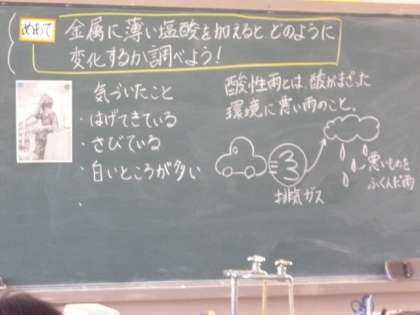 めあて
金属に薄い塩酸を加えると、どのように
変化するか調べよう！
気づいたこと
・はげてきている
・さびている
・白いところが多い
・
酸性雨とは、酸がまざった
環境に悪い雨のこと。
排気ガス
悪いものを
ふくんだ雨